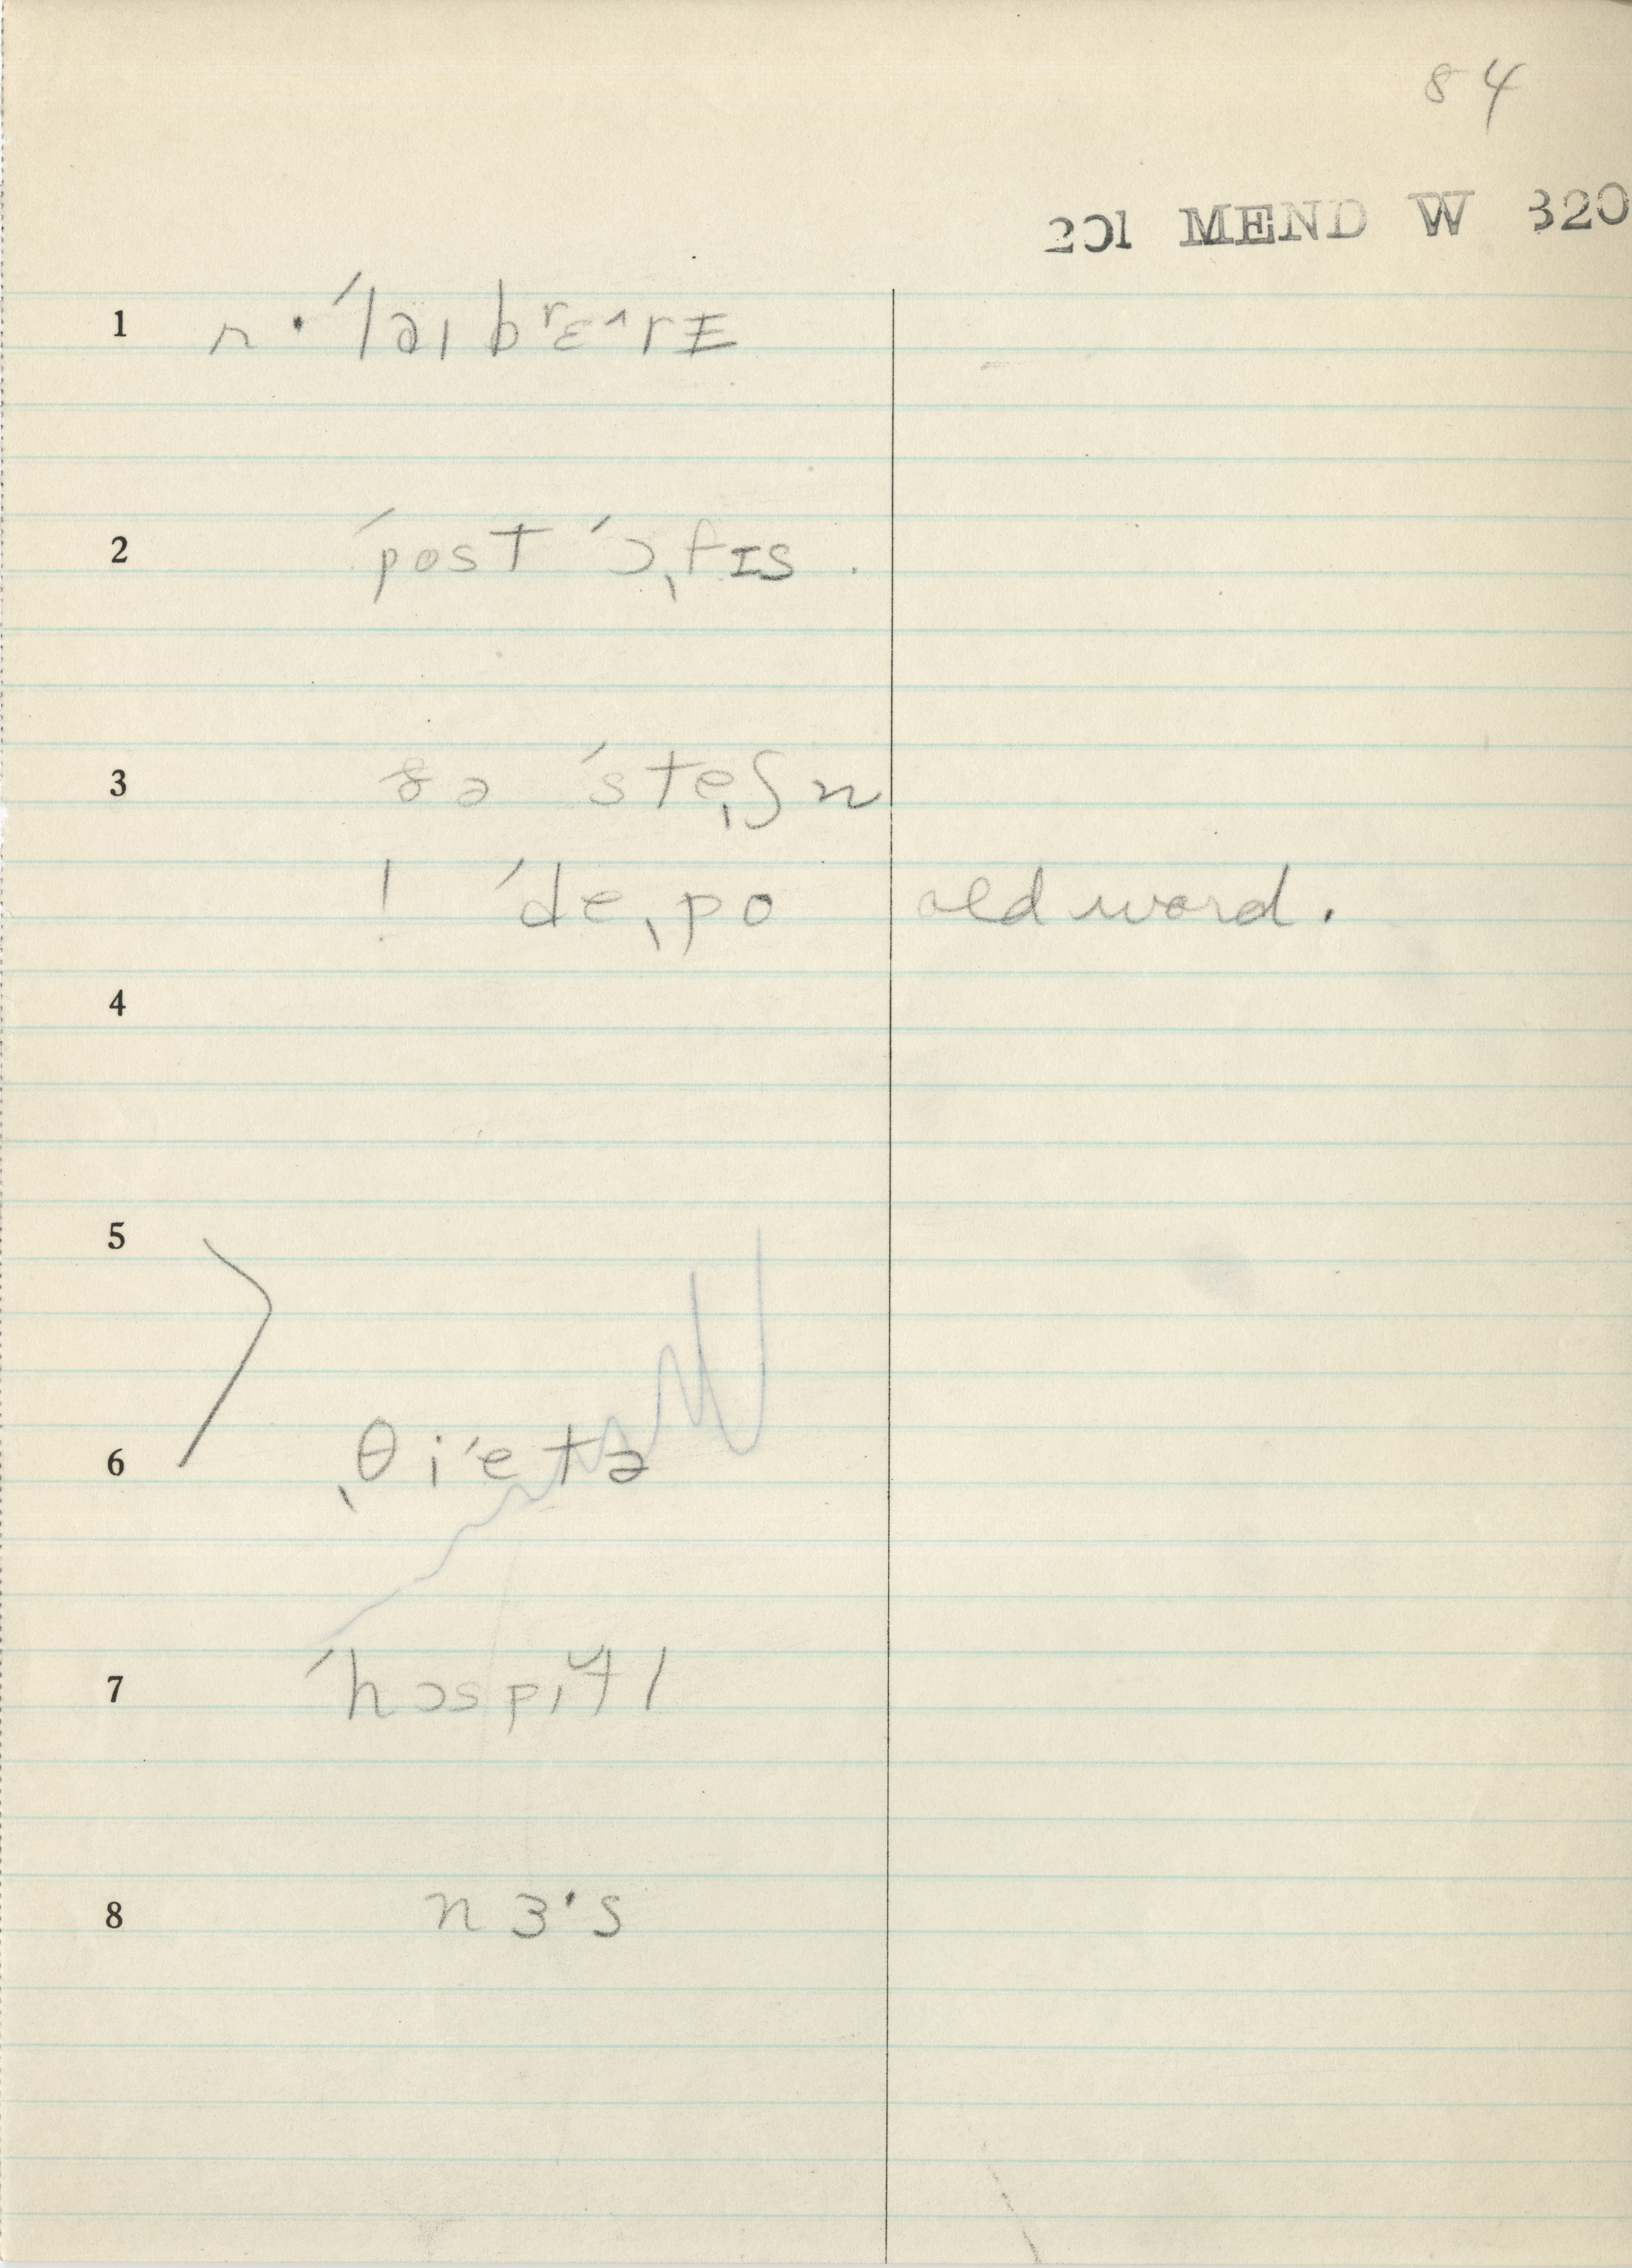 84
201 MEND W 320
1 r · ˈlaɪbrɛ^rɪ
2 ˈpost ˈɔˌfɪs .
3 ðə ˈsteˌʃn
! ˈdeˌpo old word.
4
5
6 ˌθiˈetə
7 ˈhɔspɪtl
8 nɜ·s